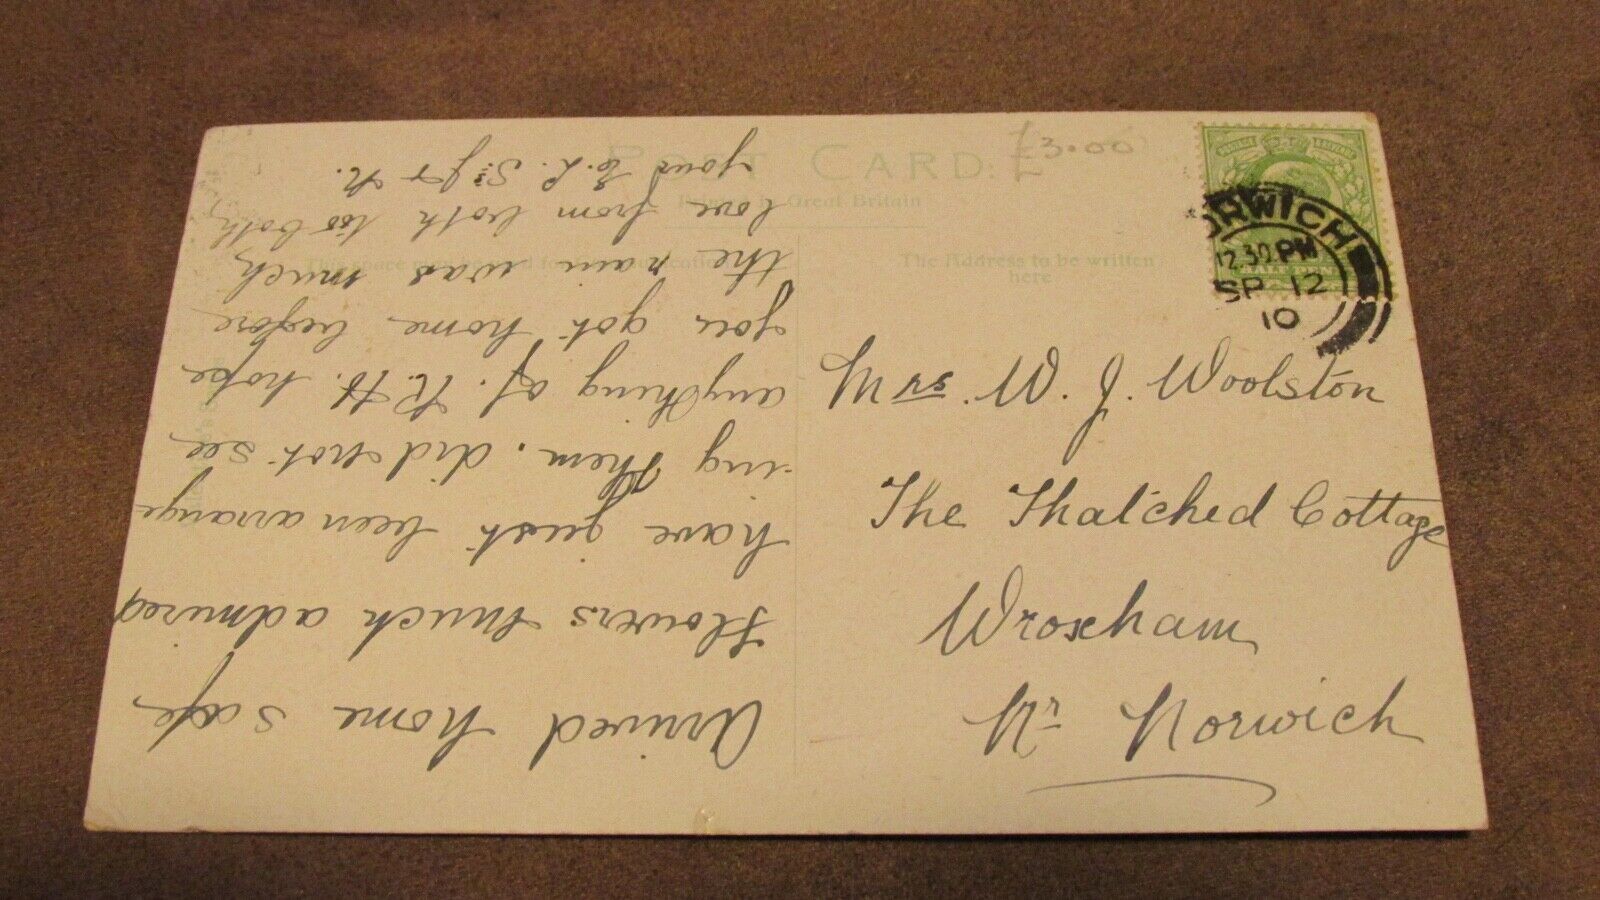 POST CARD.
£3.00
Printed in Great Britain
The Address to be written
here
NORWICH
12.30 PM
SP 12
10
HALFPENNY
Mrs. W. J. Woolston
The Thatched Cottage
Wroxham
Nr Norwich
Arrived home safe
Flowers much admired
have just been arrange
-ing them. did not see
anything of. R. H. hope
you got home before
the rain was much
love from both too both
your E. L.